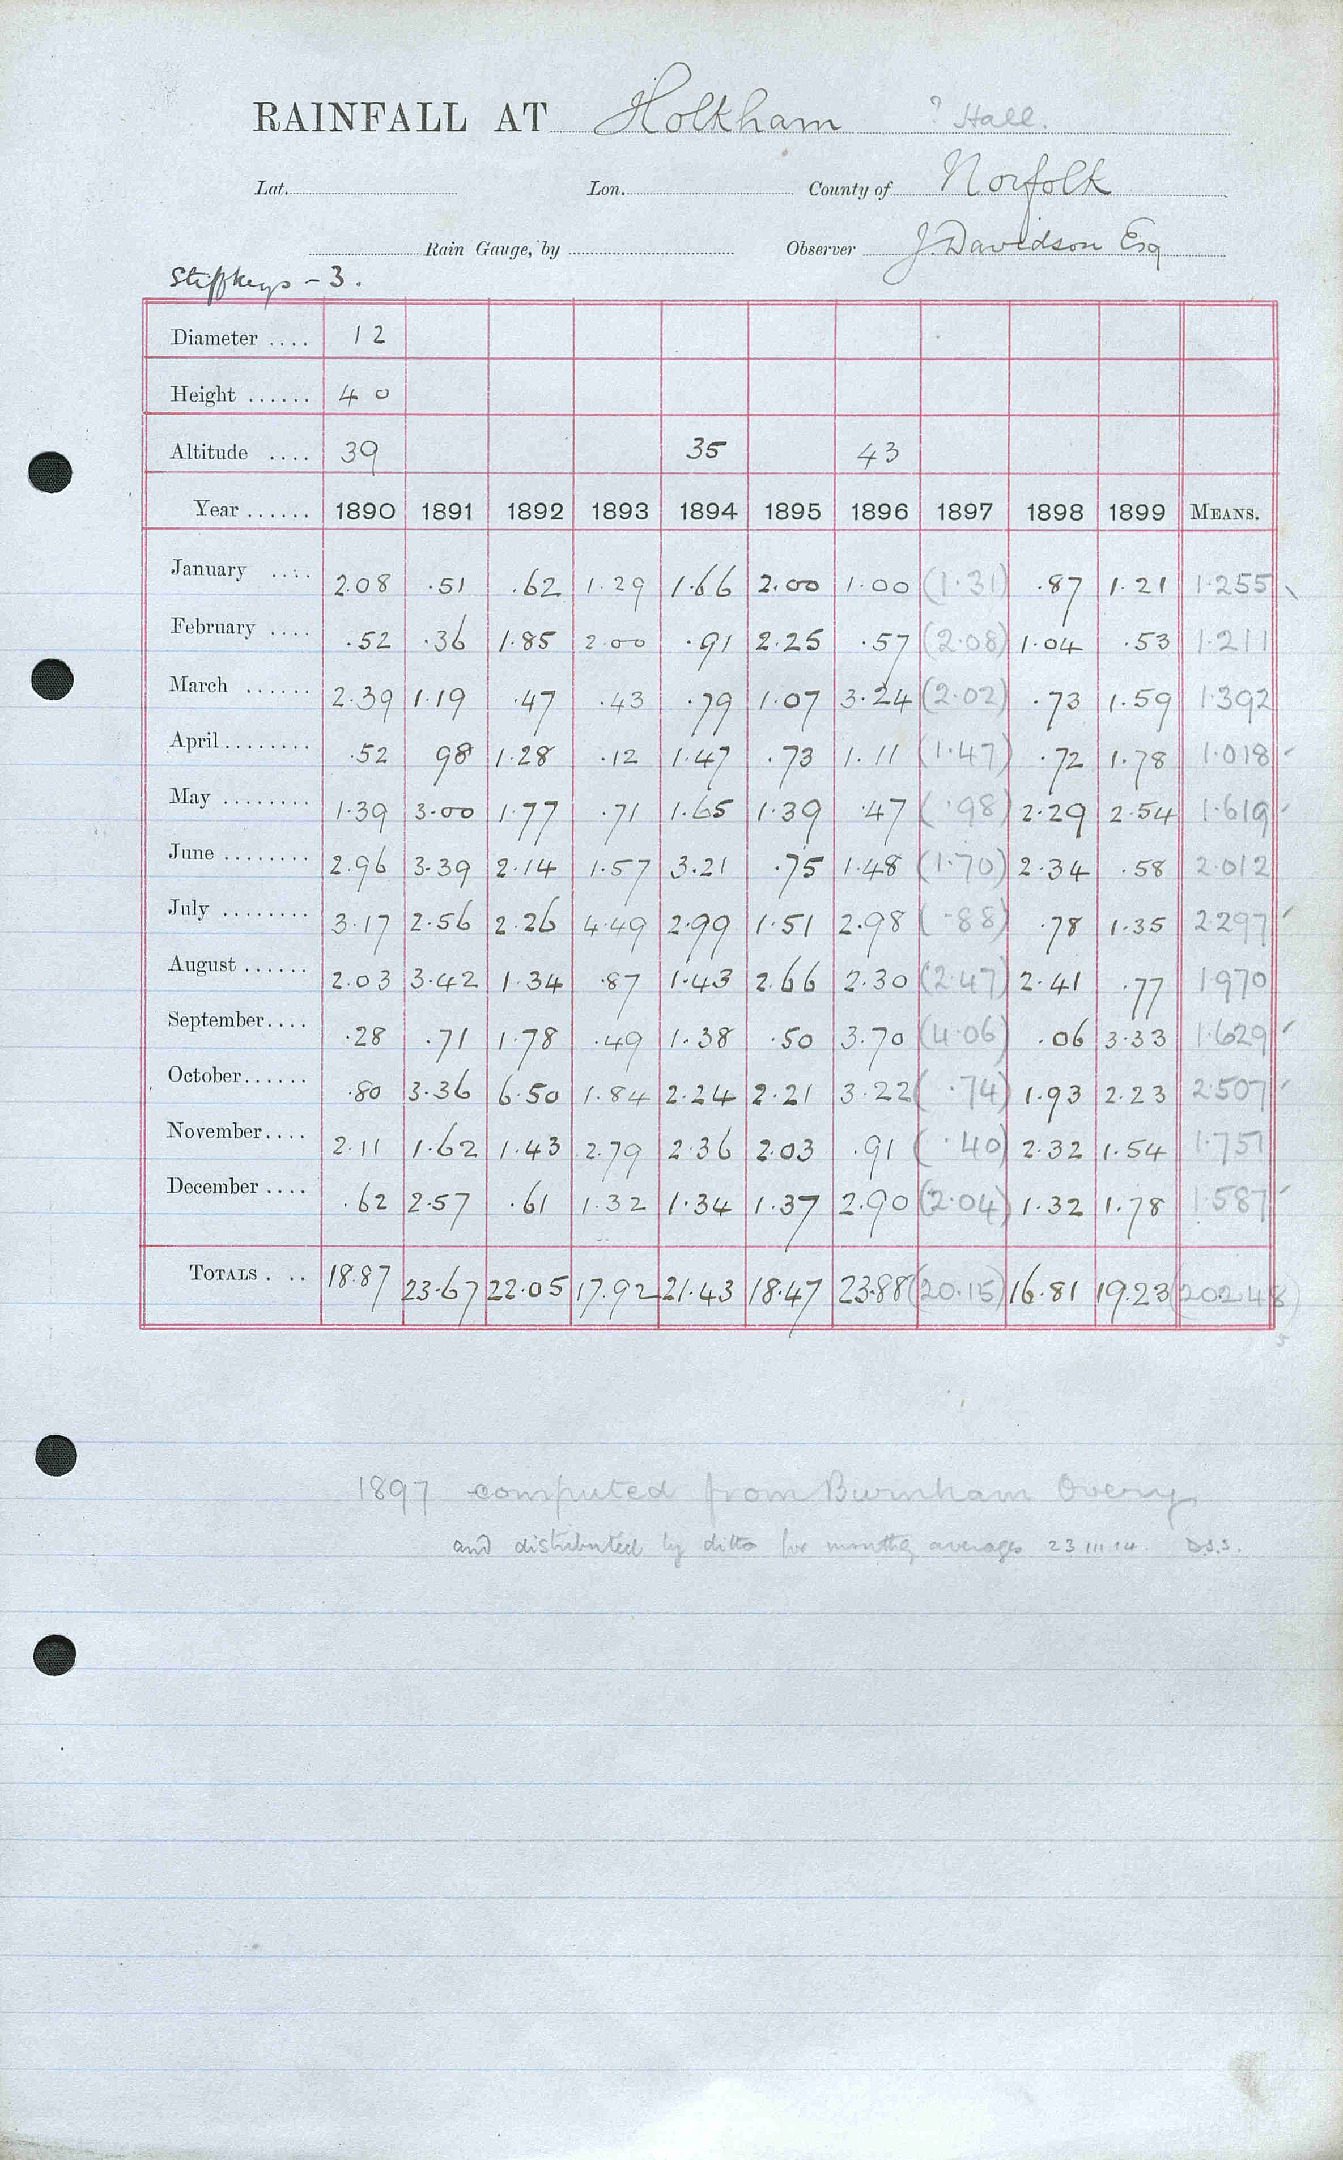 RAINFALL AT Holkham ? Hall.
Lat. Lon. County of Norfolk
Rain Gauge, by Observer J. Davidson Esq
Stiffkeys - 3.
Diameter .... 12
Height ...... 40
Altitude .... 39 35 43
Year ...... 1890 1891 1892 1893 1894 1895 1896 1897 1898 1899 MEANS.
January .... 2.08 .51 .62 1.29 1.66 2.00 1.00 (1.31) .87 1.21 1.255
February .... .52 .36 1.85 2.00 .91 2.25 .57 (2.08) 1.04 .53 1.211
March ...... 2.39 1.19 .47 .43 .79 1.07 3.24 (2.02) .73 1.59 1.392
April ........ .52 98 1.28 .12 1.47 .73 1.11 (1.47) .72 1.78 1.018
May ........ 1.39 3.00 1.77 .71 1.65 1.39 .47 (.98) 2.29 2.54 1.619
June ........ 2.96 3.39 2.14 1.57 3.21 .75 1.48 (1.70) 2.34 .58 2.012
July ........ 3.17 2.56 2.26 4.49 2.99 1.51 2.98 (.88) .78 1.35 2.297
August ...... 2.03 3.42 1.34 .87 1.43 2.66 2.30 (2.47) 2.41 .77 1970
September.... .28 .71 1.78 .49 1.38 .50 3.70 (4.06) .06 3.33 1.629
October...... .80 3.36 6.50 1.84 2.24 2.21 3.22 (.74) 1.93 2.23 2.507
November.... 2.11 1.62 1.43 2.79 2.36 2.03 .91 (.40) 2.32 1.54 1.751
December .... .62 2.57 .61 1.32 1.34 1.37 2.90 (2.04) 1.32 1.78 1.587
TOTALS . .. 18.87 23.67 22.05 17.92 21.43 18.47 23.88 (20.15) 16.81 19.23 (20.248)
5
1897 computed from Burnham Overy
and distributed by ditto for monthly averages 23 III 14. D.S.S.